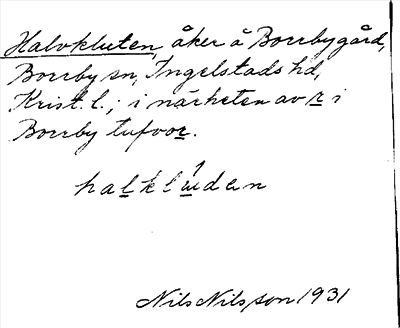 Halvkluten, åker å Borrbygård,
Borrby sn, Ingelstads hd,
Krist. l.; i närheten av r i
Borrby tufvor.
halklúden
Nils Nilsson 1931